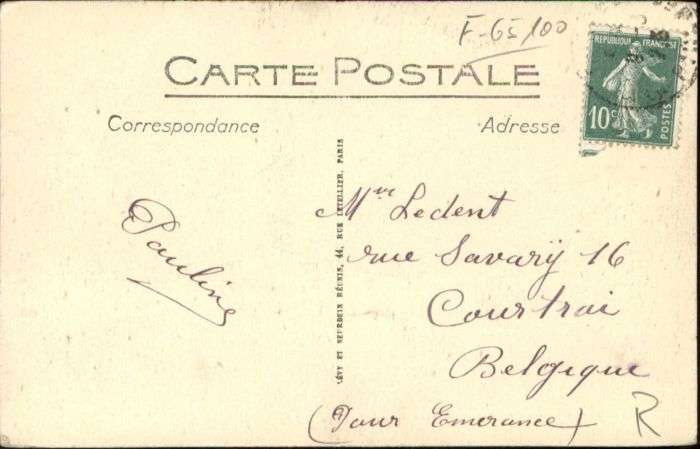 F-65/00
CARTE POSTALE
REPUBLIQUE FRANÇAISE
10c
POSTES
Correspondance
Adresse
Pauline
LÉVY ET NEURDEIN RÉUNIS, 44, RUE LETELLIER, PARIS
Mme Ledent
rue Savarÿ 16
Courtrai
Belgique
(Pour Emerance)
R